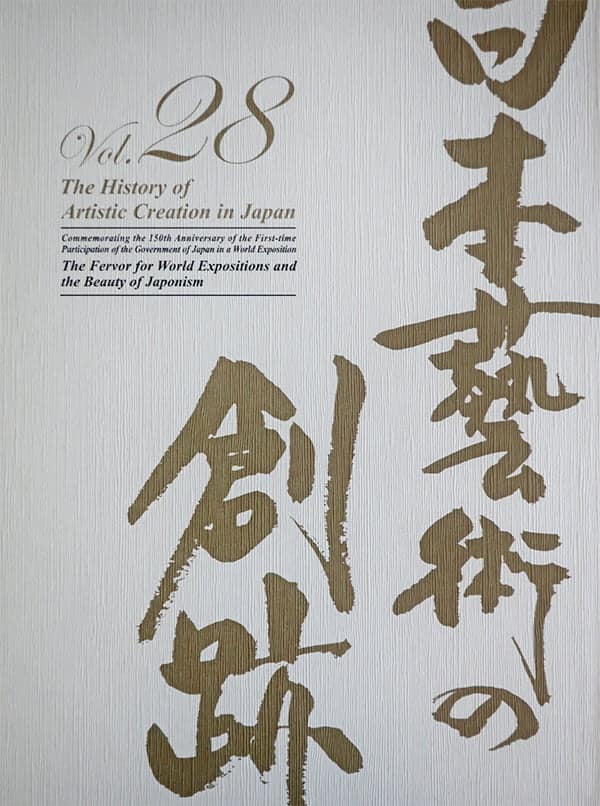 Vol. 28
The History of
Artistic Creation in Japan
Commemorating the 150th Anniversary of the First-time
Participation of the Government of Japan in a World Exposition
The Fervor for World Expositions and
the Beauty of Japonism
日本藝術の
創跡